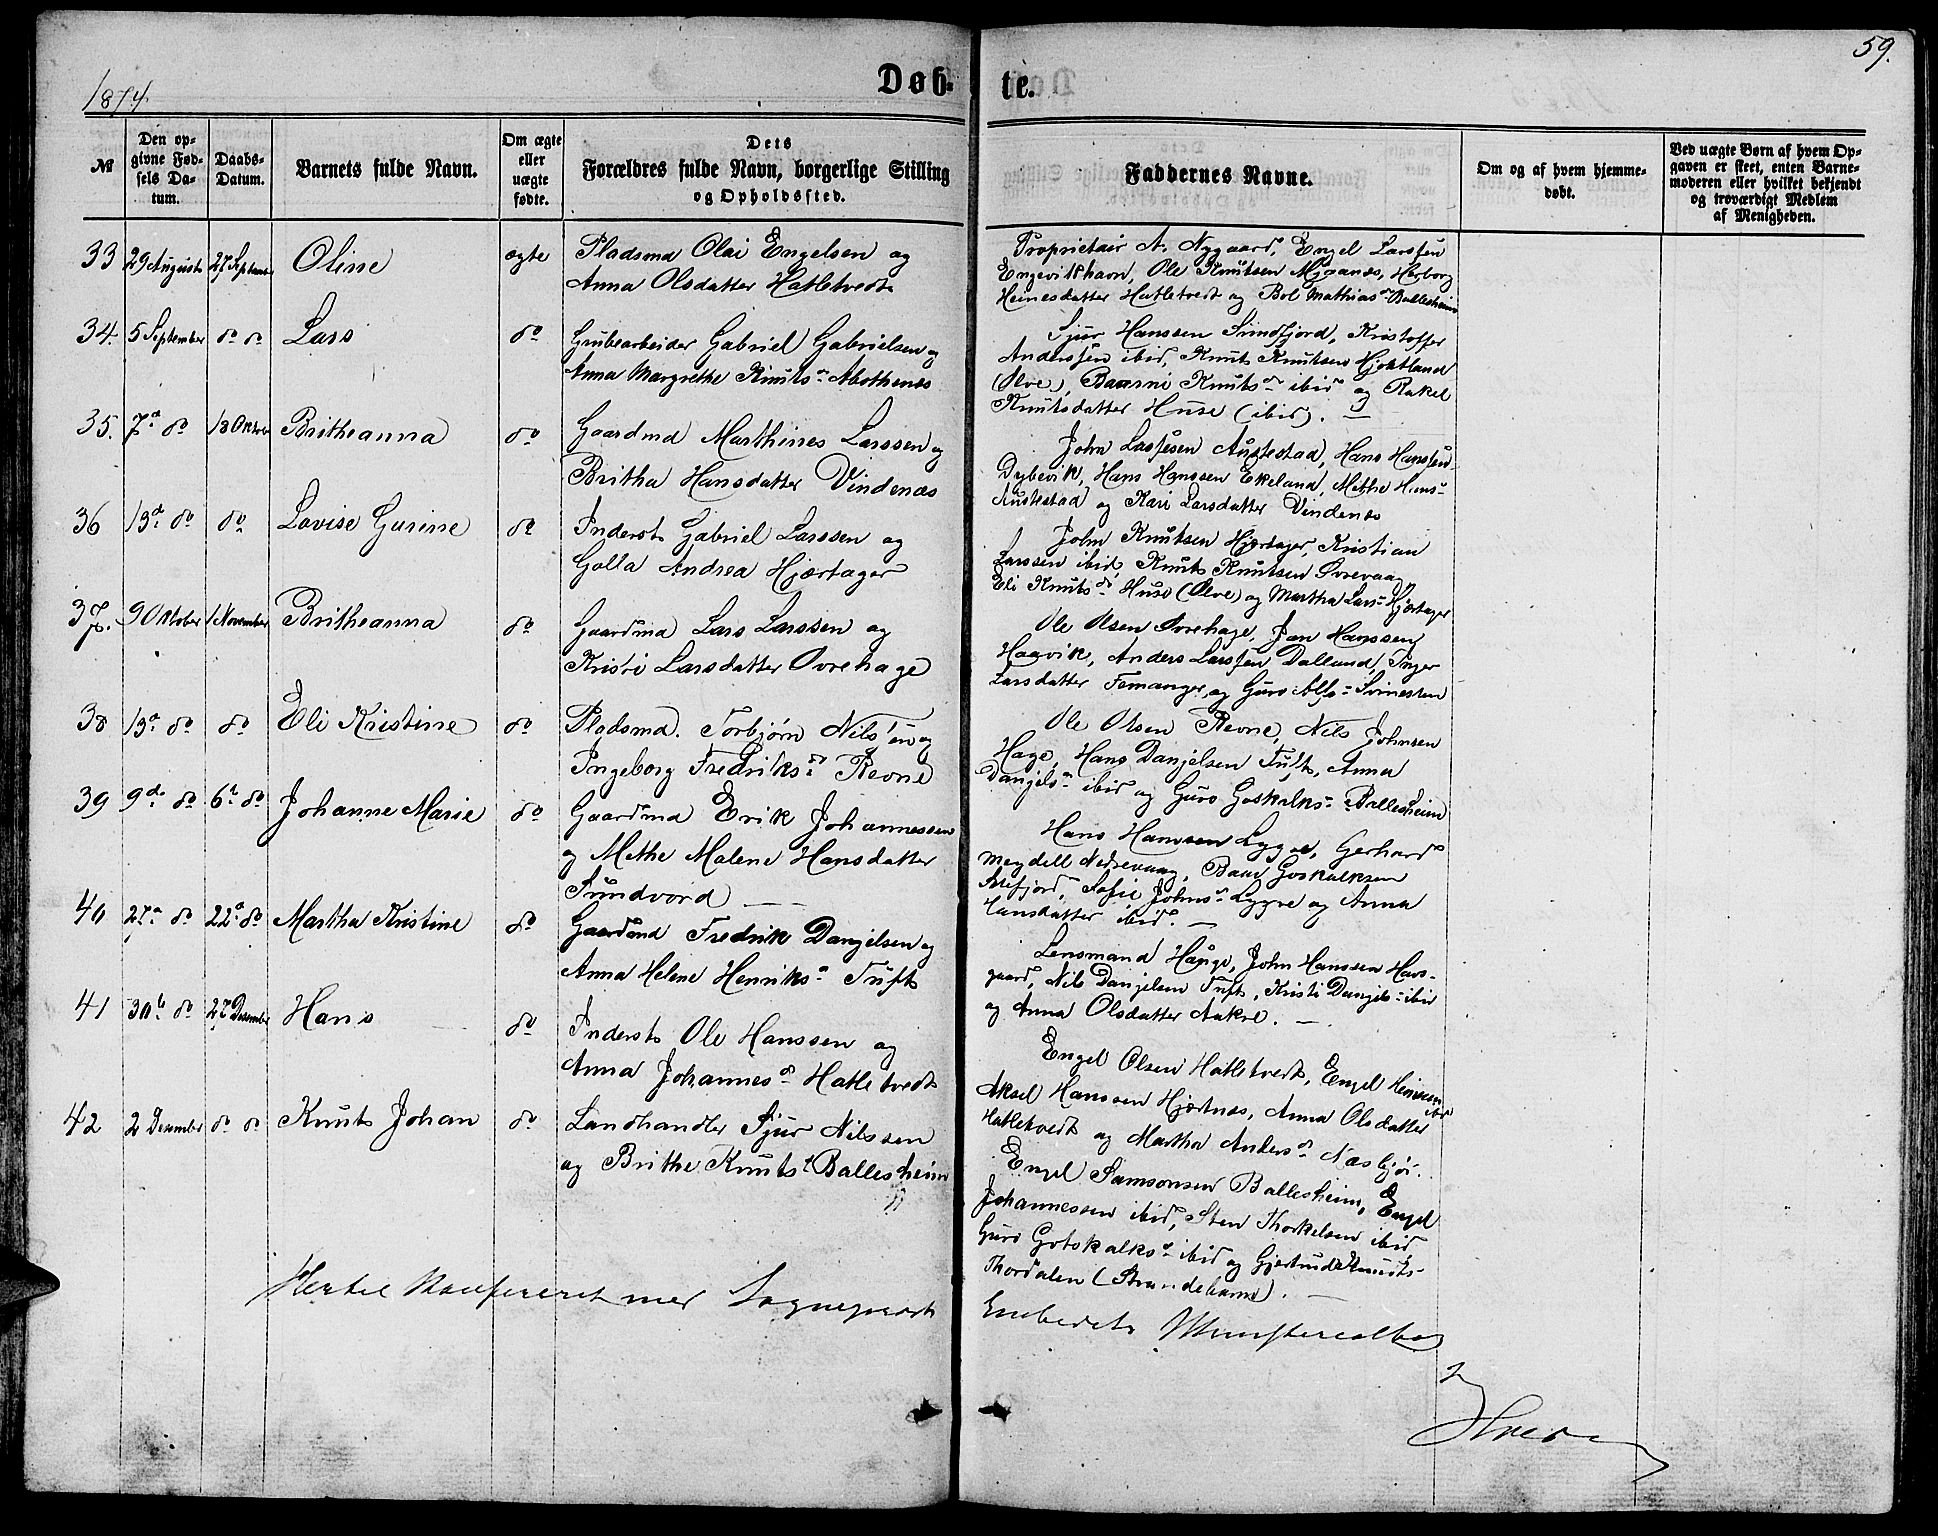 1874.
Døb-
te.
59.
№
Den op-
givne Fød-
sels Da-
tum.
Daabs-
Datum.
Barnets fulde Navn.
Om ægte
eller
uægte
fødte.
Dets
Forældres fulde Navn, borgerlige Stilling
og Opholdssted.
Faddernes Navne.
Om og af hvem hjemme-
døbt.
Ved uægte Børn af hvem Op-
gaven er skeet, enten Barne-
moderen eller hvilket bekjendt
og troværdigt Medlem
af Menigheden.
33 29 August 27 Septemb Oline ægte Pladsmd Olai Engelsen og
Anna Olsdatter Hatletvedt
Proprietair A. Nygaard, Engel Larssen
Engevikhavn, Ole Knutsen Mjaanæs, Herborg
Heinesdatter Hatletvedt og Bol Mathiasd Ballesheim
34 5 September do do Lars do Grubearbeider Gabriel Gabrielsen og
Anna Margrethe Knutsd
Sjur Hanssen Sundfjord, Kristoffer
Anderssen ibid, Knut Knutsen Hjortland
(Ølve), Knutsd ibid og Rakel
Knutsdatter Huse (ibid). —
35. 7d do 18 Oktober Britheanna do Gaardmd Marthines Larssen og
Britha Hansdatter Vindenes
John Lassesen Austestad, Hans Hanssen
Dybevik, Hans Hanssen Ekeland, Methe Hans-
Austestad og Kari Larsdatter Vindenes
36 13d do do Lovise Gurine do Inderst Gabriel Larssen og
Golla Andrea Hjærtager
John Knutsen Hjærtager, Kristian
Larssen ibid, Knut Knutsen Øvrevaag,
Eli Knutsd Huse (Ølve) og Martha Lars- Hjertager
37. 9 Oktober 1 November Britheanna do Gaardmd Lars Larssen og
Kristi Larsdatter Øvrehage
Ole Olsen Øvrehage, Jan Hanssen
Haavik, Anders Larssen Dalland, Inger
Larsdatter Femanger, og Guro
38 13d do do Eli Kristine do Pladsmd. Torbjørn Nilssen og
Ingeborg Fredriksd Revne
Ole Olsen Revne, Nils Johnsen
Hage, Hans Danjelsen Tuft, Anna
Danjelsd ibid og Guro Goskalks- Ballesheim
39 9d do 6t do Johanne Marie do Gaardmd Erik Johannessen
og Methe Malene Hansdatter
Sundvord —
Hans Hanssen Lygre, Gerhard
Meydell Nedrevaag, Baar Goskalksen
Sofie Johnsd Lygre og Anna
Hansdatter ibid. —
40 27d do 22d do Martha Kristine do Gaardmd Fredrik Danjelsen og
Anna Helene Henriksd Tuft
Lensmand Hauge, John Hanssen Havs-
gaard, Nils Danjelsen Tuft, Kristi Danjels- ibid
og Anna Olsdatter Aakre. —
41 30t do 27 Desember Hans do Inderst Ole Hanssen og
Anna Johannesd Hatletvedt
Engel Olsen Hatletvedt, Engel Heinesen ibid
Aksel Hanssen Hjørtnæs, Anna Olsdatter
Hatletvedt og Martha Andersd Næsbjør.
42 2 Desember do do Knut Johan do Landhandler Sjur Nilssen
og Brithe Knutsd Ballesheim
Engel Samsonsen Ballesheim, Engel
Johannessen ibid, Sten Thorkelsen ibid,
Guro Gotskalksd ibid og Gjertrud Knuds-
Thordalen (Strandebarm). —
Hertil Konfereret med Sognepræst
Embedets Ministerialbog